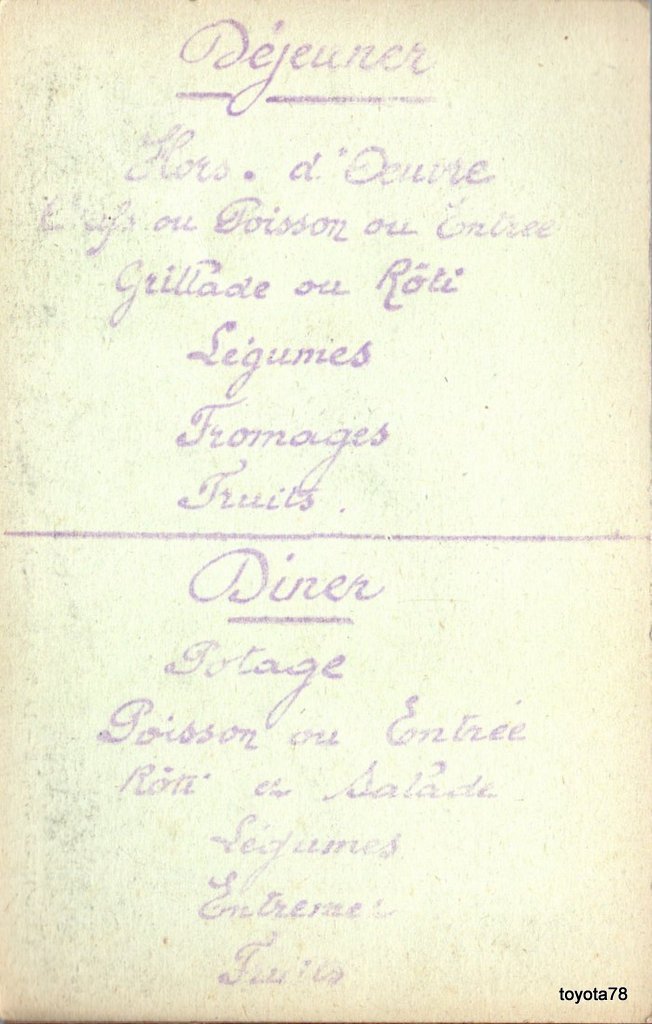 Déjeuner
Hors. d'Oeuvre
Œufs ou Poisson ou Entrée
Grillade ou Rôti
Légumes
Fromages
Fruits.
Diner
Potage
Poisson ou Entrée
Rôti et Salade
Légumes
Entremet
Fruits
toyota78